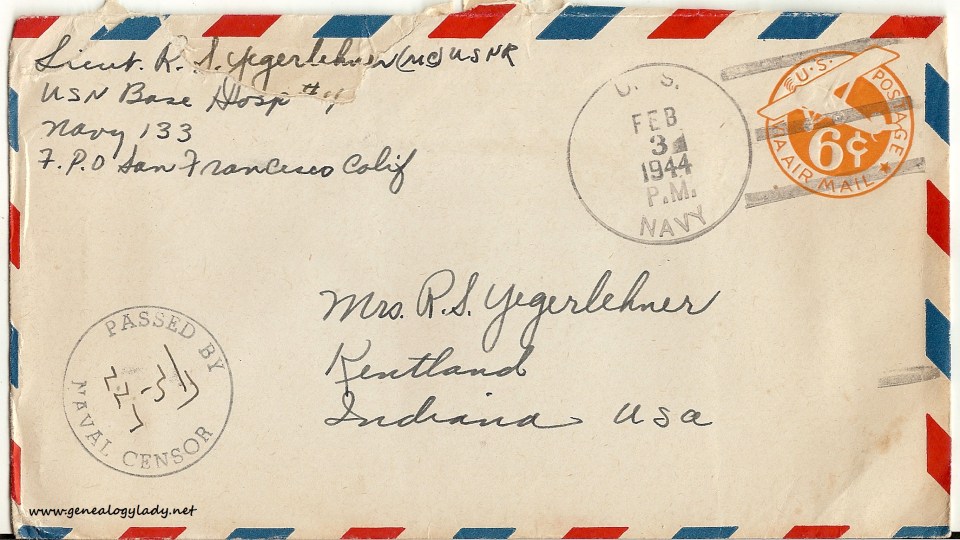 Lieut. R. S. Yegerlehner (MC) USNR
USN Base Hosp #4
Navy 133
F.P.O San Francisco Calif
U. S.
FEB
3
1944
P.M.
NAVY
U.S. POSTAGE
6¢
VIA AIR MAIL
Mrs. R. S. Yegerlehner
Kentland
Indiana USA
PASSED BY
NAVAL CENSOR
www.genealogylady.net